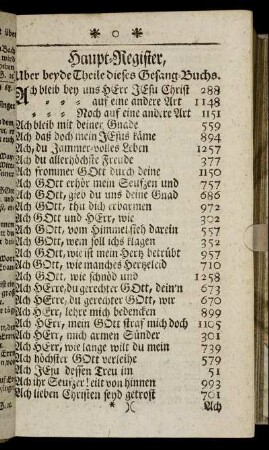 * o *
Haupt-Register,
Uber beyde Theile dieses Gesang-Buchs.
Ach bleib bey uns HErr JEsu Christ 288
= = = auf eine andere Art 1148
= = = Noch auf eine andere Art 1151
Ach bleib mit deiner Gnade 559
Ach daß doch mein JEsus käme 894
Ach, du Jammer-volles Leben 1257
Ach du allerhöchste Freude 377
Ach frommer GOtt durch deine 1150
Ach GOtt erhör mein Seufzen und 757
Ach GOtt, gieb du uns deine Gnad 686
Ach GOtt, thu dich erbarmen 972
Ach GOtt und HErr, wie 302
Ach GOtt, vom Himmel sieh darein 557
Ach GOtt, wem soll ichs klagen 352
Ach GOtt, wie ist mein Hertz betrübt 957
Ach GOtt, wie manches Hertzeleid 710
Ach GOtt, wie schnöd und 1258
Ach HErre, du gerechter GOtt, dein'n 673
Ach HErre, du gerechter GOtt, wir 670
Ach HErr, lehre mich bedencken 899
Ach HErr, mein GOtt straf mich doch 1105
Ach HErr, mich armen Sünder 301
Ach HErr, wie lange wilt du mein 739
Ach höchster GOtt verleihe 579
Ach JEsu dessen Treu im 51
Ach ihr Seufzer! eilt von hinnen 993
Ach lieben Christen seyd getrost 701
* )( Ach